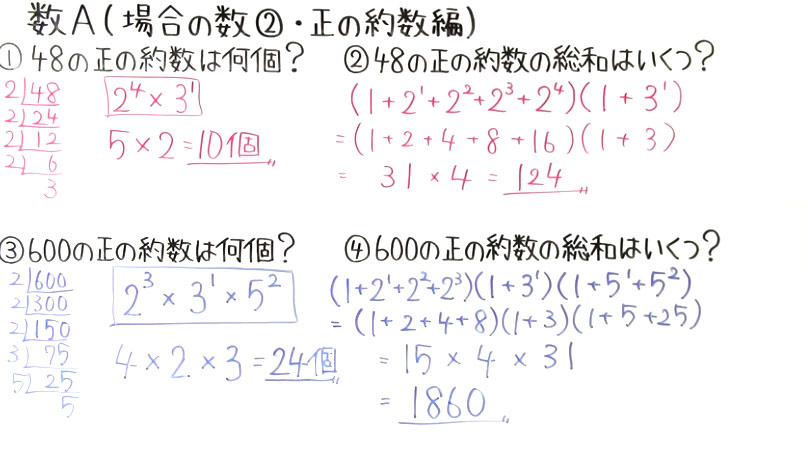 数A(場合の数②・正の約数編)
①48の正の約数は何個?
2⟌48
2⟌24
2⟌12
2⟌6
3
2⁴×3¹
5×2=10個
②48の正の約数の総和はいくつ?
(1+2¹+2²+2³+2⁴)(1+3¹)
=(1+2+4+8+16)(1+3)
= 31×4=124
③600の正の約数は何個?
2⟌600
2⟌300
2⟌150
3⟌75
5⟌25
5
2³×3¹×5²
4×2×3=24個
④600の正の約数の総和はいくつ?
(1+2¹+2²+2³)(1+3¹)(1+5¹+5²)
=(1+2+4+8)(1+3)(1+5+25)
=15×4×31
=1860